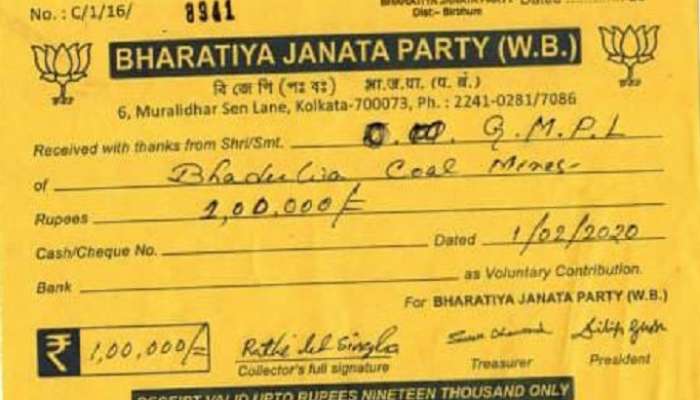 No. : C/1/16/ 8941
BHARATIYA JANATA PARTY Dated
Dist:- Birbhum
BHARATIYA JANATA PARTY (W.B.)
বি জে পি (পঃ বঃ) भा.ज.पा. (प. बं.)
6, Muralidhar Sen Lane, Kolkata-700073, Ph. : 2241-0281/7086
Received with thanks from Shri/Smt. G.M.P.L
of Bhadulia Coal Mines-
Rupees 1,00,000/-
Cash/Cheque No. Dated 1/02/2020
Bank as Voluntary Contribution.
For BHARATIYA JANATA PARTY (W.B.)
₹ 1,00,000/-
Collector's full signature Treasurer President
RECEIPT VALID UPTO RUPEES NINETEEN THOUSAND ONLY